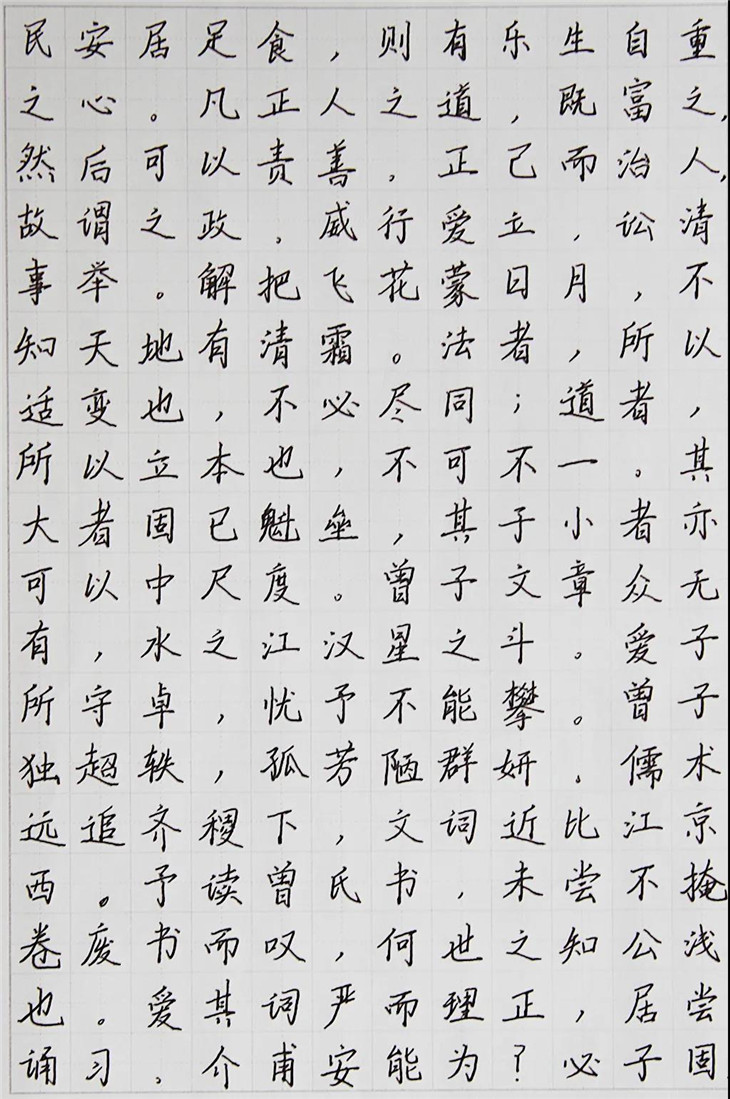 民安居足食，则有乐生自重
之心。凡正人之道，既富之，
然后可以责善。正己而治人，
故谓之政。威行爱立，讼清
事举。解把飞花蒙日月，不
知天地有清霜。法者，所以
适变也，不必尽同；道者，
所以立本也，不可不一。其
大者固已魁垒，其于小者亦
可以中尺度。曾子文章众无
有，水之江汉星之斗。爱子
所守卓，忧予不能攀。曾子
独超轶，孤芳陋群妍。儒术
远追齐稷下，文词近比江京
西。予读曾氏书，未尝不掩
卷废书而叹，何世之知公浅
也。爱其词严而理正，居尝
诵习。介甫安能为？必子固